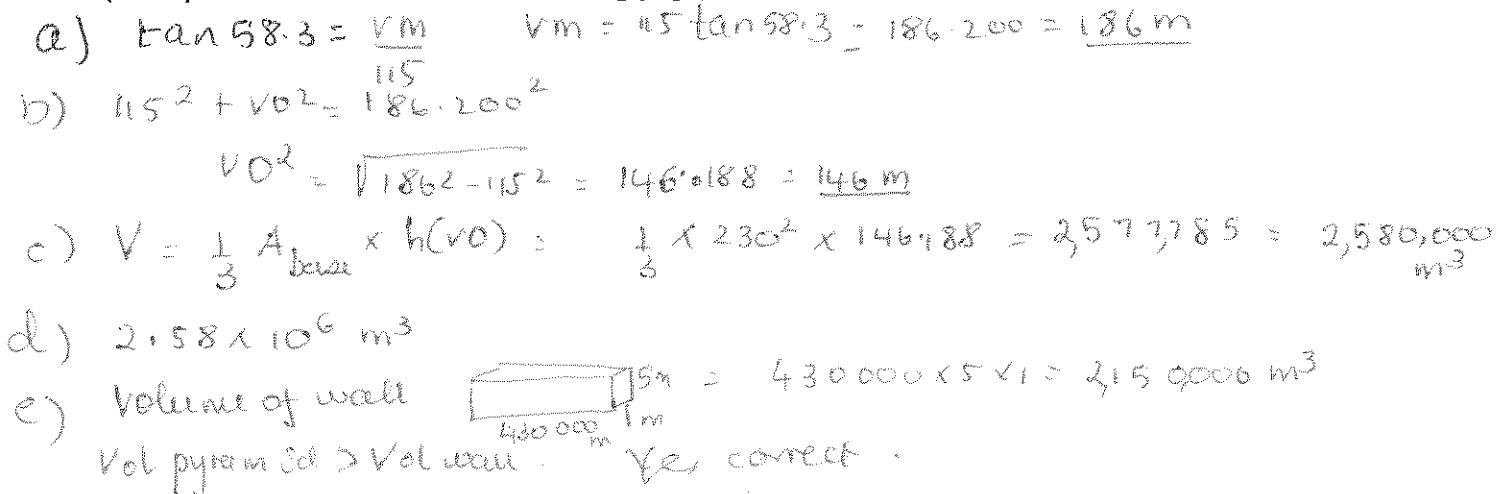 a) tan 58.3 = VM/115 VM = 115 tan 58.3 = 186.200 = 186 m
b) 115² + VO² = 186.200²
VO² = √186² - 115² = 146.188 = 146 m
c) V = 1/3 A base × h(VO) = 1/3 × 230² × 146.188 = 2,577,785 = 2,580,000 m³
d) 2.58 × 10⁶ m³
e) Volume of wall 5m 1m 430 000 m = 430 000 × 5 × 1 = 2,150,000 m³
Vol pyramid > Vol wall. Yes, correct.